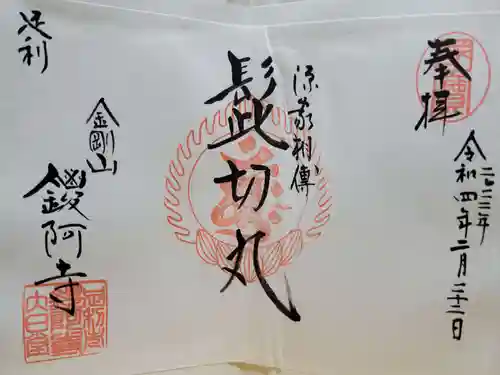 奉拝
二〇二二年
令和四年二月二十二日
源家相傳
髭切丸
足利
金剛山
鑁阿寺